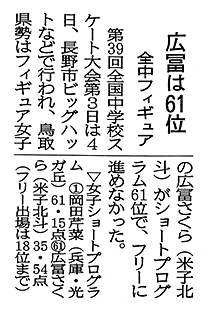 広冨は61位
全中フィギュア
第39回全国中学校ス
ケート大会第3日は4
日、長野市ビッグハッ
トなどで行われ、鳥取
県勢はフィギュア女子
の広冨さくら（米子北
斗）がショートプログ
ラム61位で、フリーに
進めなかった。
▽女子ショートプログラ
ム ①岡田芹菜（兵庫・光
ガ丘）61・15点(61)広冨さく
ら（米子北斗）35・54点
（フリー出場は18位まで）